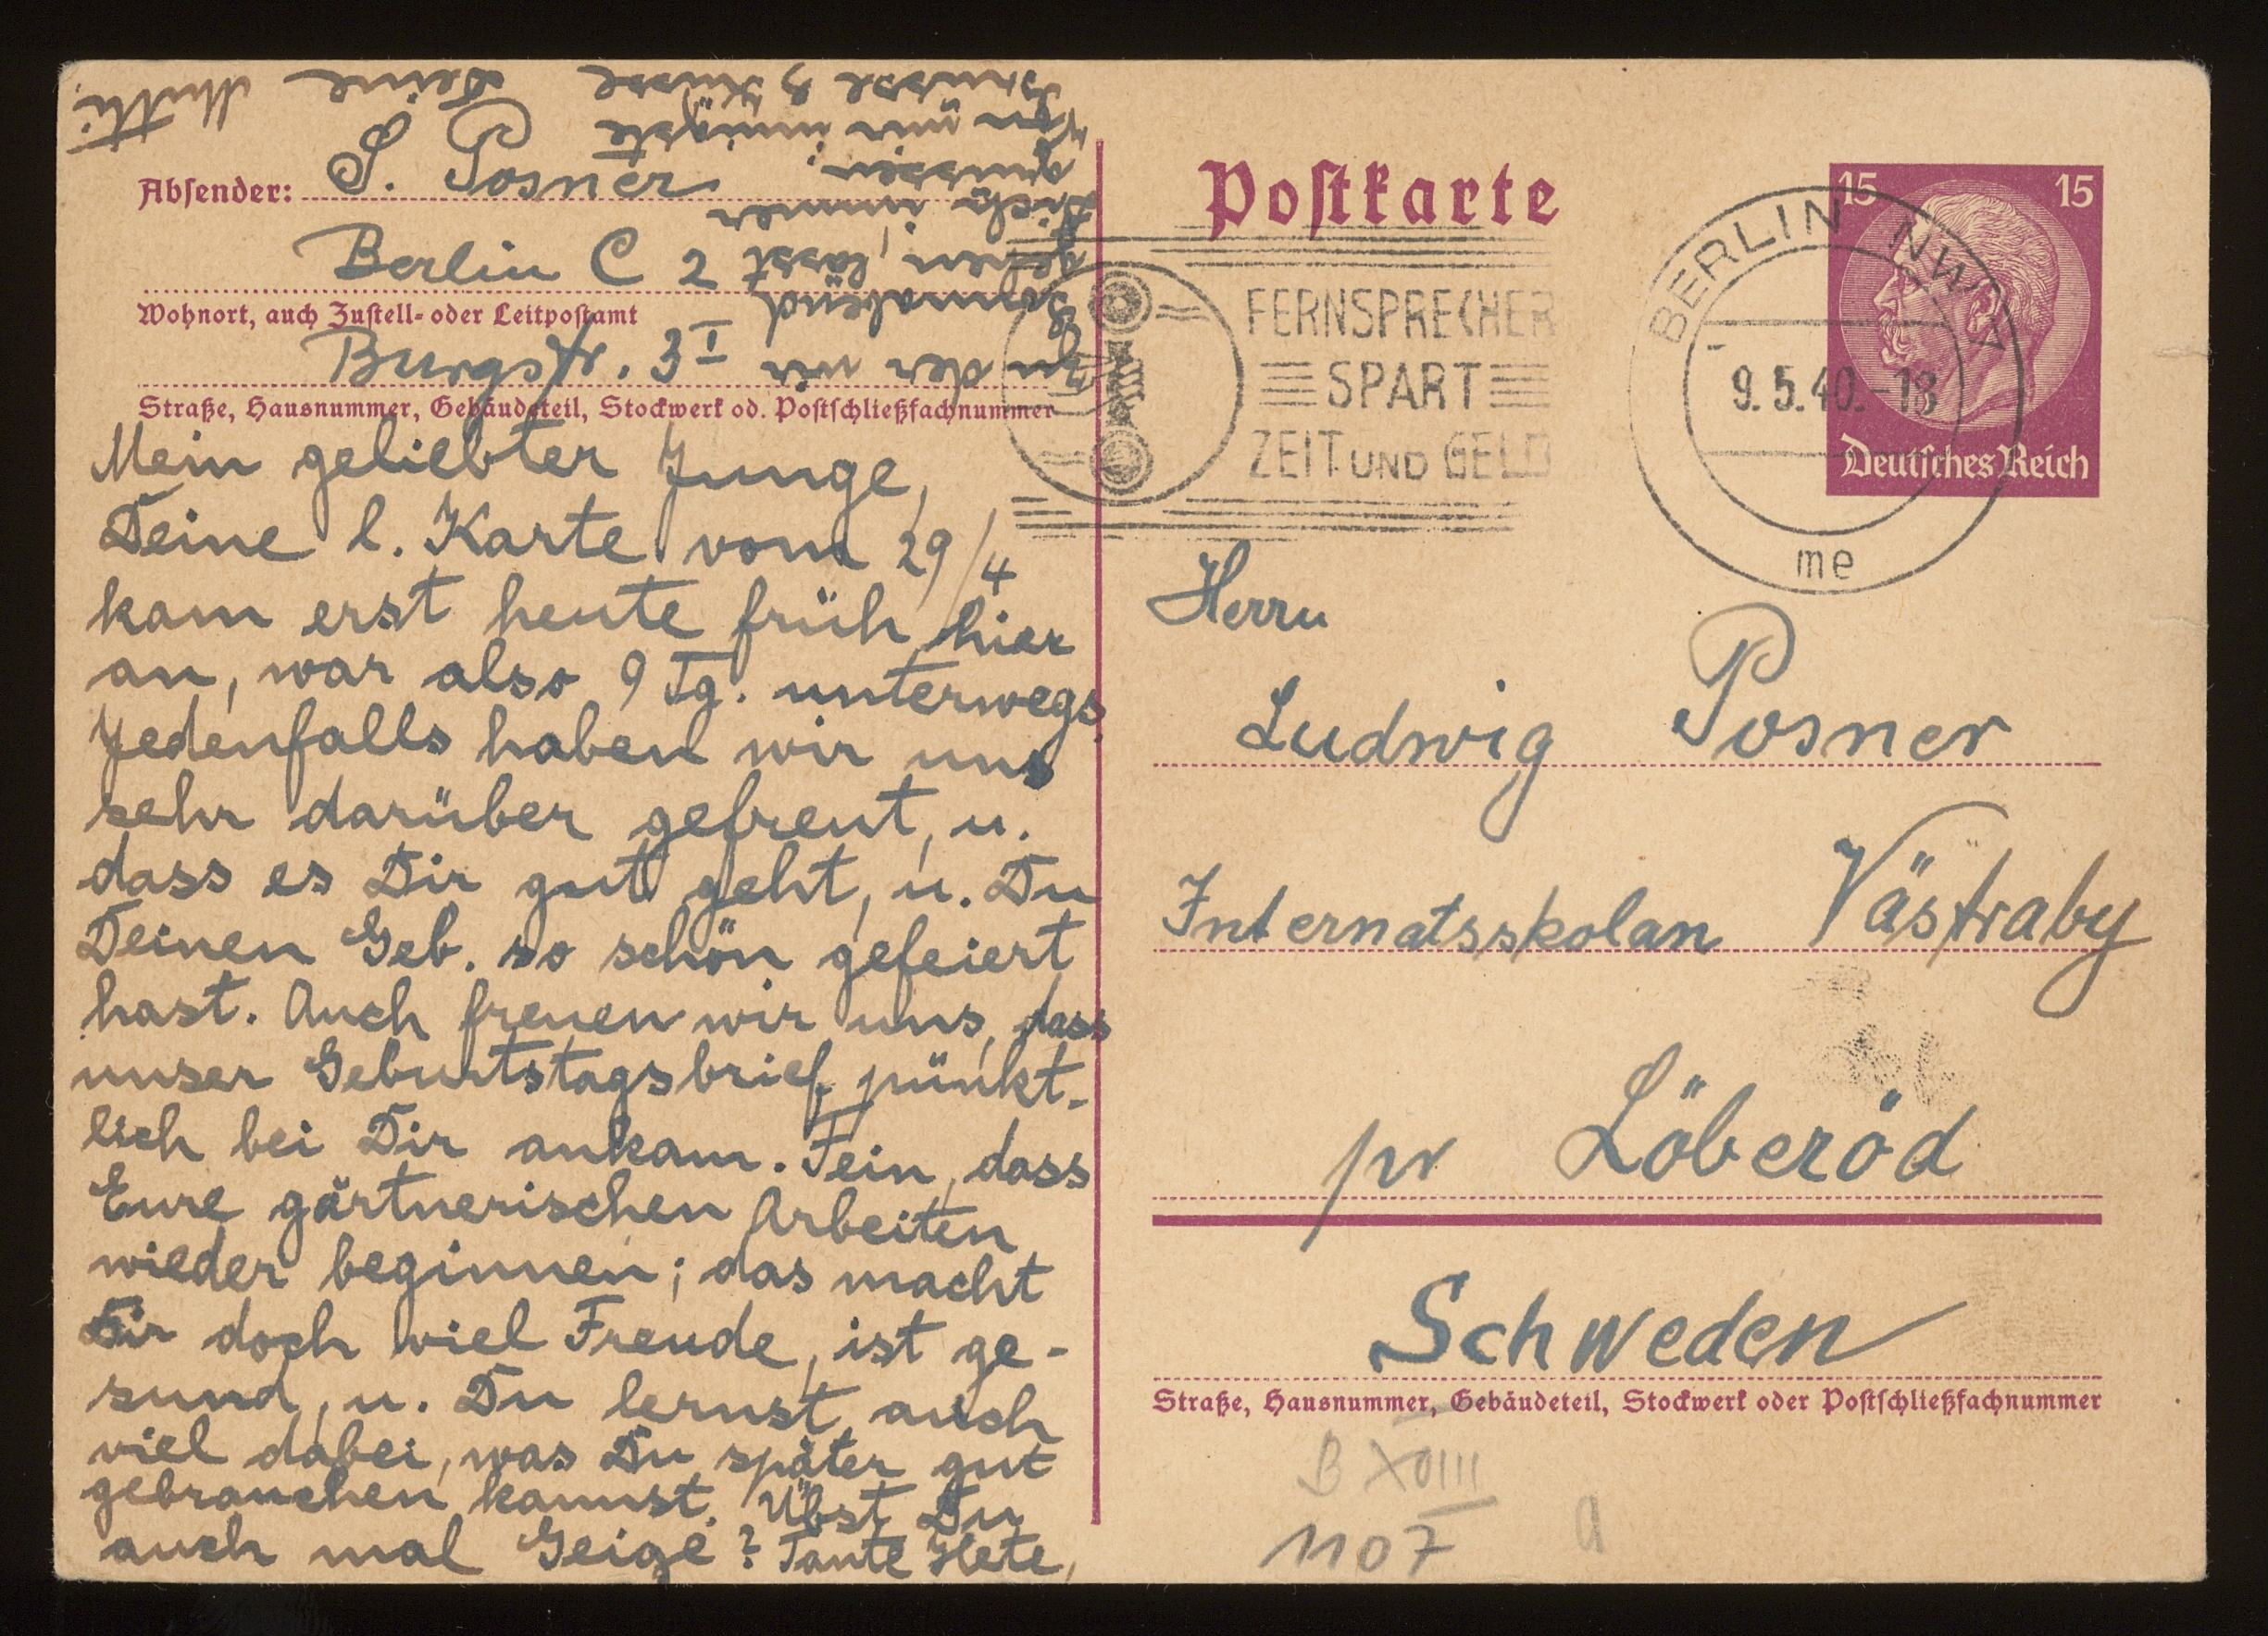 Absender: S. Posner
Berlin C 2
Wohnort, auch Zustell- oder Leitpostamt
Burgstr. 3 I
Straße, Hausnummer, Gebäudeteil, Stockwerk od. Postschließfachnummer
Mein geliebter Junge,
Deine l. Karte vom 29/4
kam erst heute früh hier
an, war also 9 Tg. unterwegs.
Jedenfalls haben wir uns
sehr darüber gefreut, u.
dass es Dir gut geht, u. Du
Deinen Geb. so schön gefeiert
hast. Auch freuen wir uns, dass
unser Geburtstagsbrief pünkt-
lich bei Dir ankam. Fein, dass
Eure gärtnerischen Arbeiten
wieder beginnen; das macht
Dir doch viel Freude, ist ge-
sund, u. Du lernst auch
viel dabei, was Du später gut
gebrauchen kannst. Übst Du
auch mal Geige? Tante Hete,
zu der wir
Sonnabend
gehen, lässt
Dich immer
grüssen.
Von mir innigste
Grüsse & Küsse Deine Mutti.
Postkarte
FERNSPRECHER
SPART
ZEIT UND GELD
BERLIN NW 7
9.5.40.-18
me
15 15
Deutsches Reich
Herrn
Ludwig Posner
Internatsskolan Västraby
pr Löberöd
Schweden
Straße, Hausnummer, Gebäudeteil, Stockwerk oder Postschließfachnummer
1107 a